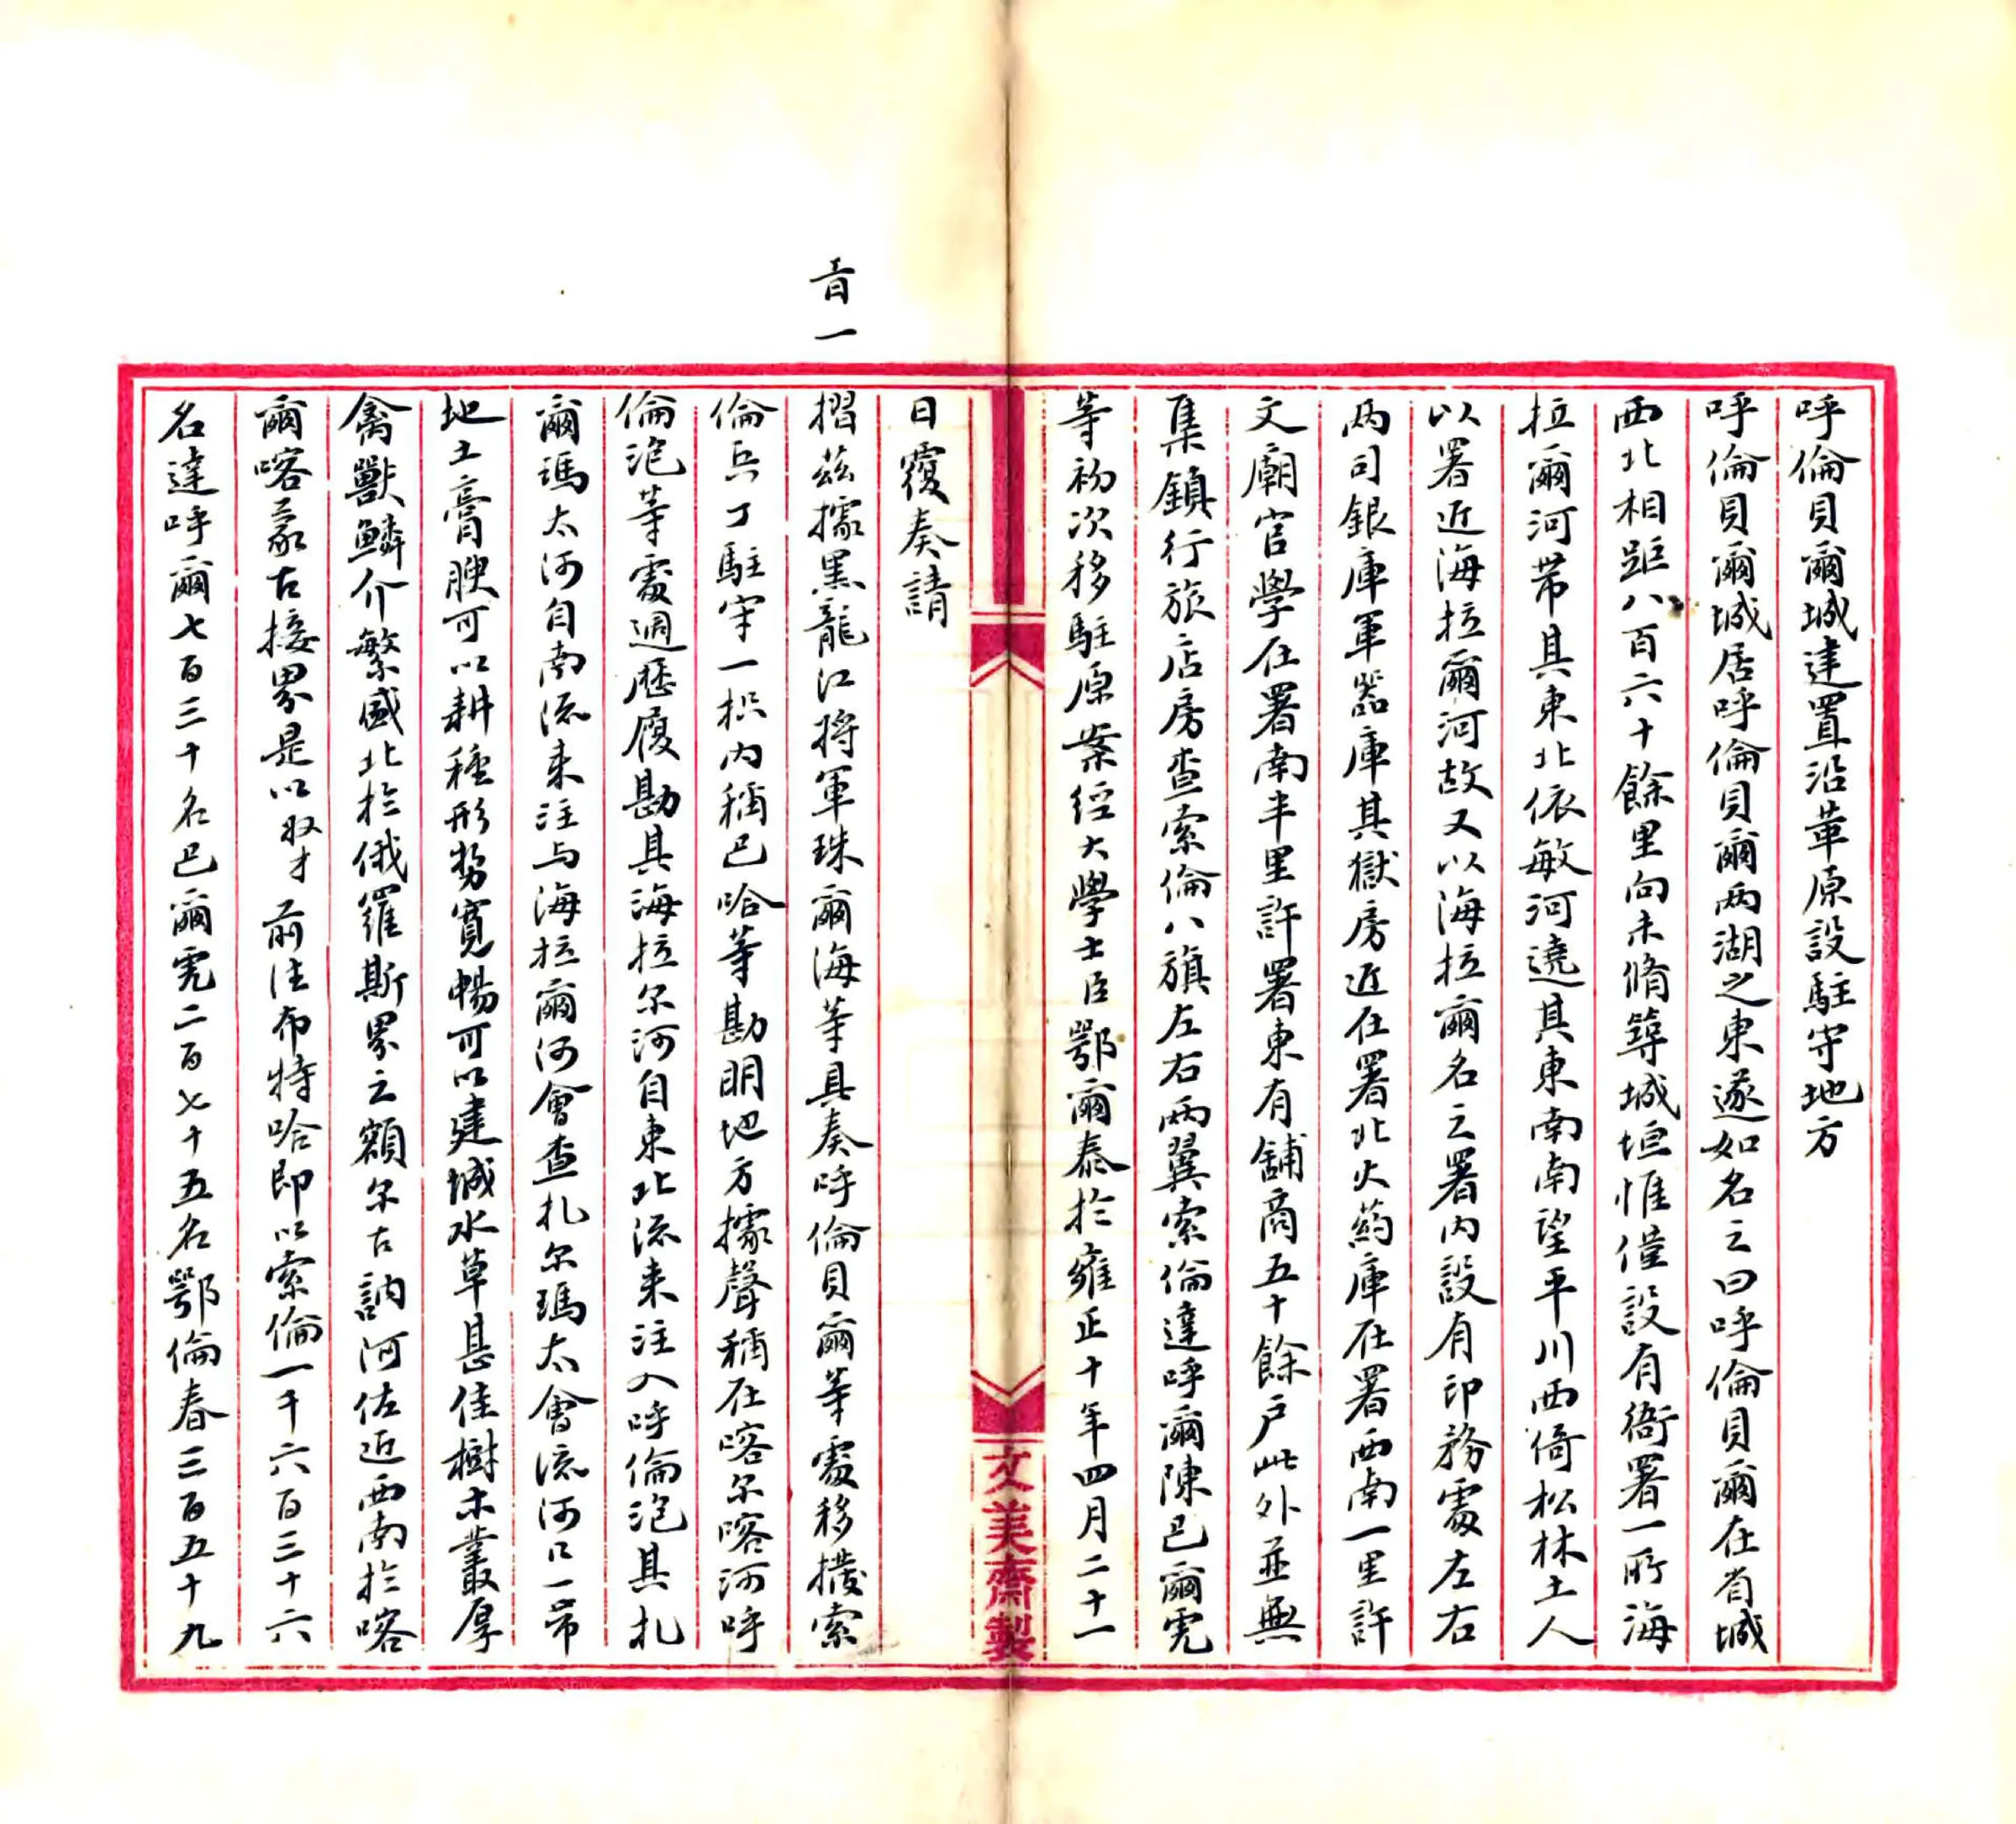 呼倫貝爾城建置沿革原設駐守地方
呼倫貝爾城居呼倫貝爾两湖之東遂如名之曰呼倫貝爾在省城
西北相距八百六十餘里向未脩築城垣惟僅設有衙署一所海
拉爾河帶其東北依敏河遶其東南南望平川西倚松林土人
以署近海拉爾河故又以海拉爾名之署内設有印務處左右
两司銀庫軍器庫其獄房近在署北火葯庫在署西南一里許
文廟官學在署南半里許署東有舖商五十餘户此外並無
集鎮行旅店房查索倫八旗左右兩翼索倫達呼爾陳巴爾虎
等初次移駐原案經大學士臣鄂爾泰於雍正十年四月二十一
日覆奏請
旨一
摺兹據黑龍江將軍珠爾海等具奏呼倫貝爾等處移撥索
倫兵丁駐守一摺内稱巴哈等勘明地方據聲稱在喀尔喀河呼
倫泡等處週歷履勘其海拉尔河自東北流来注入呼倫泡其扎
爾瑪太河自南流来注与海拉爾河會查扎尔瑪太會流河口一帶
地土膏腴可以耕種形势寬暢可以建城水草甚佳樹木叢厚
禽獸鱗介繁盛北於俄羅斯界之額尔古訥河佐近西南於喀
爾喀蒙古接界是以奴才前往布特哈即以索倫一千六百三十六
名達呼爾七百三十名巴爾虎二百七十五名鄂倫春三百五十九
文美齋製